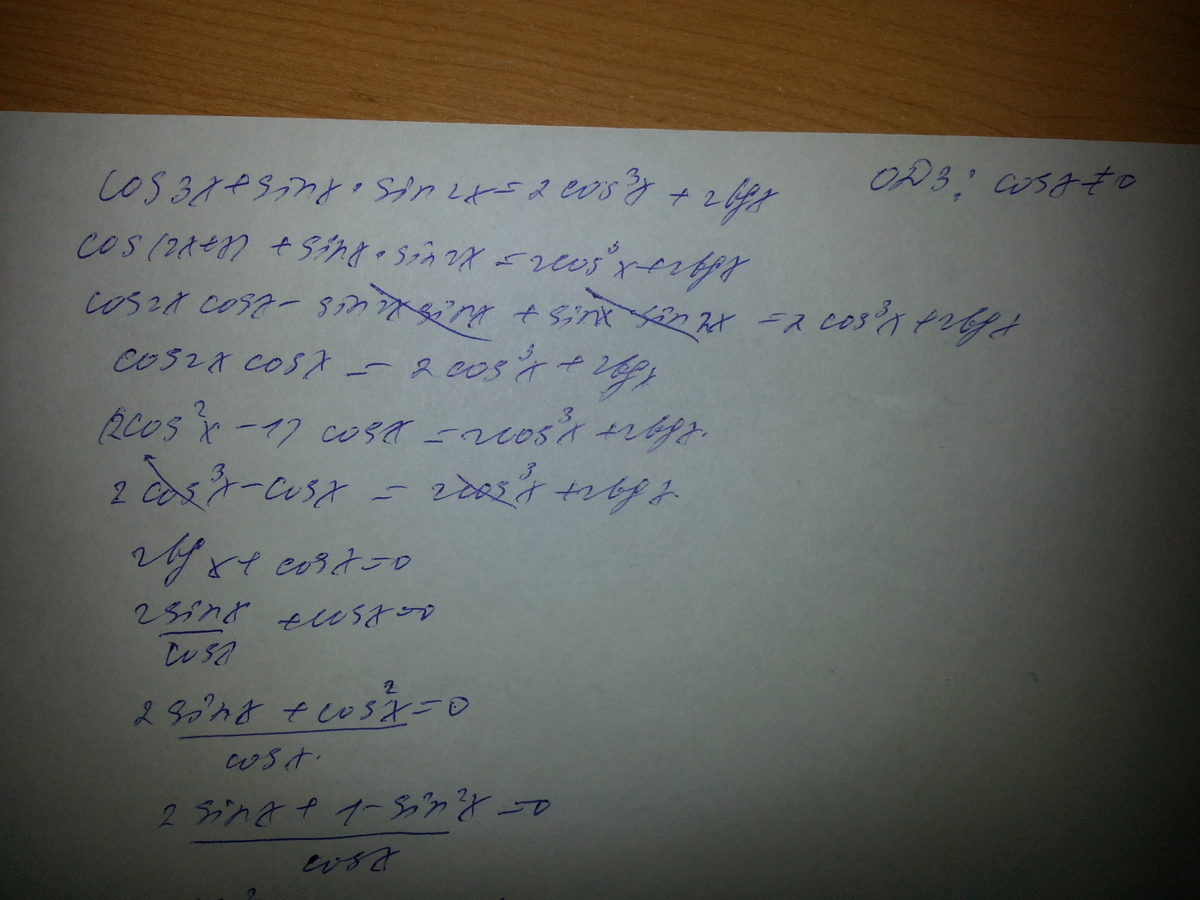 cos3x + sinx · sin2x = 2cos³x + 2tgx ОДЗ: cosx ≠ 0
cos(2x+x) + sinx · sin2x = 2cos³x + 2tgx
cos2x cosx - sin2x sinx + sinx · sin2x = 2cos³x + 2tgx
cos2x cosx = 2cos³x + 2tgx
(2cos²x - 1) cosx = 2cos³x + 2tgx.
2cos³x - cosx = 2cos³x + 2tgx.
2tgx + cosx = 0
2sinx + cosx = 0
cosx
2sinx + cos²x = 0
cosx.
2sinx + 1 - sin²x = 0
cosx